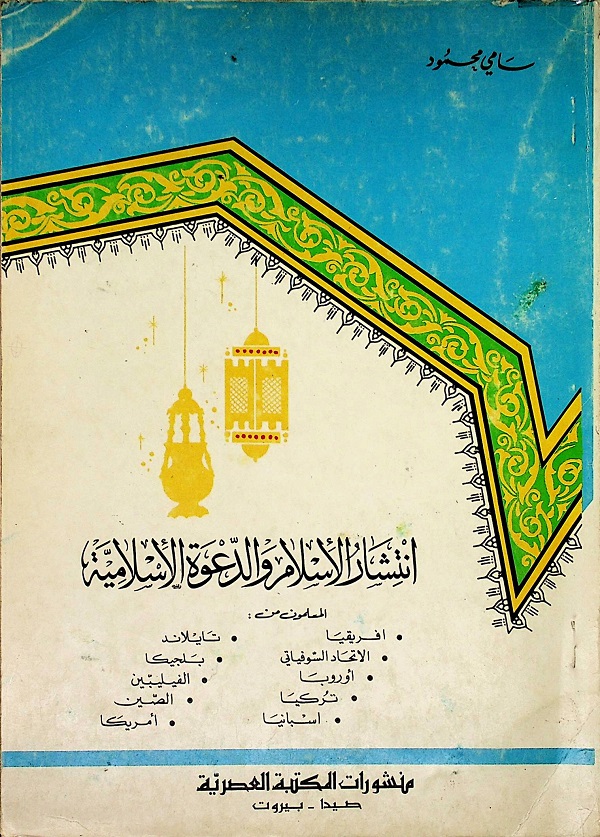 سامي محمود
انتشار الأسلام والدعوة الأسلامية
المسلمون من :
• افريقيا • تايلاند
• الاتحاد السوفياتي • بلجيكا
• أوروبا • الفيليبين
• تركيا • الصين
• اسبانيا • أمريكا
منشورات المكتبة العصرية
صيدا - بيروت